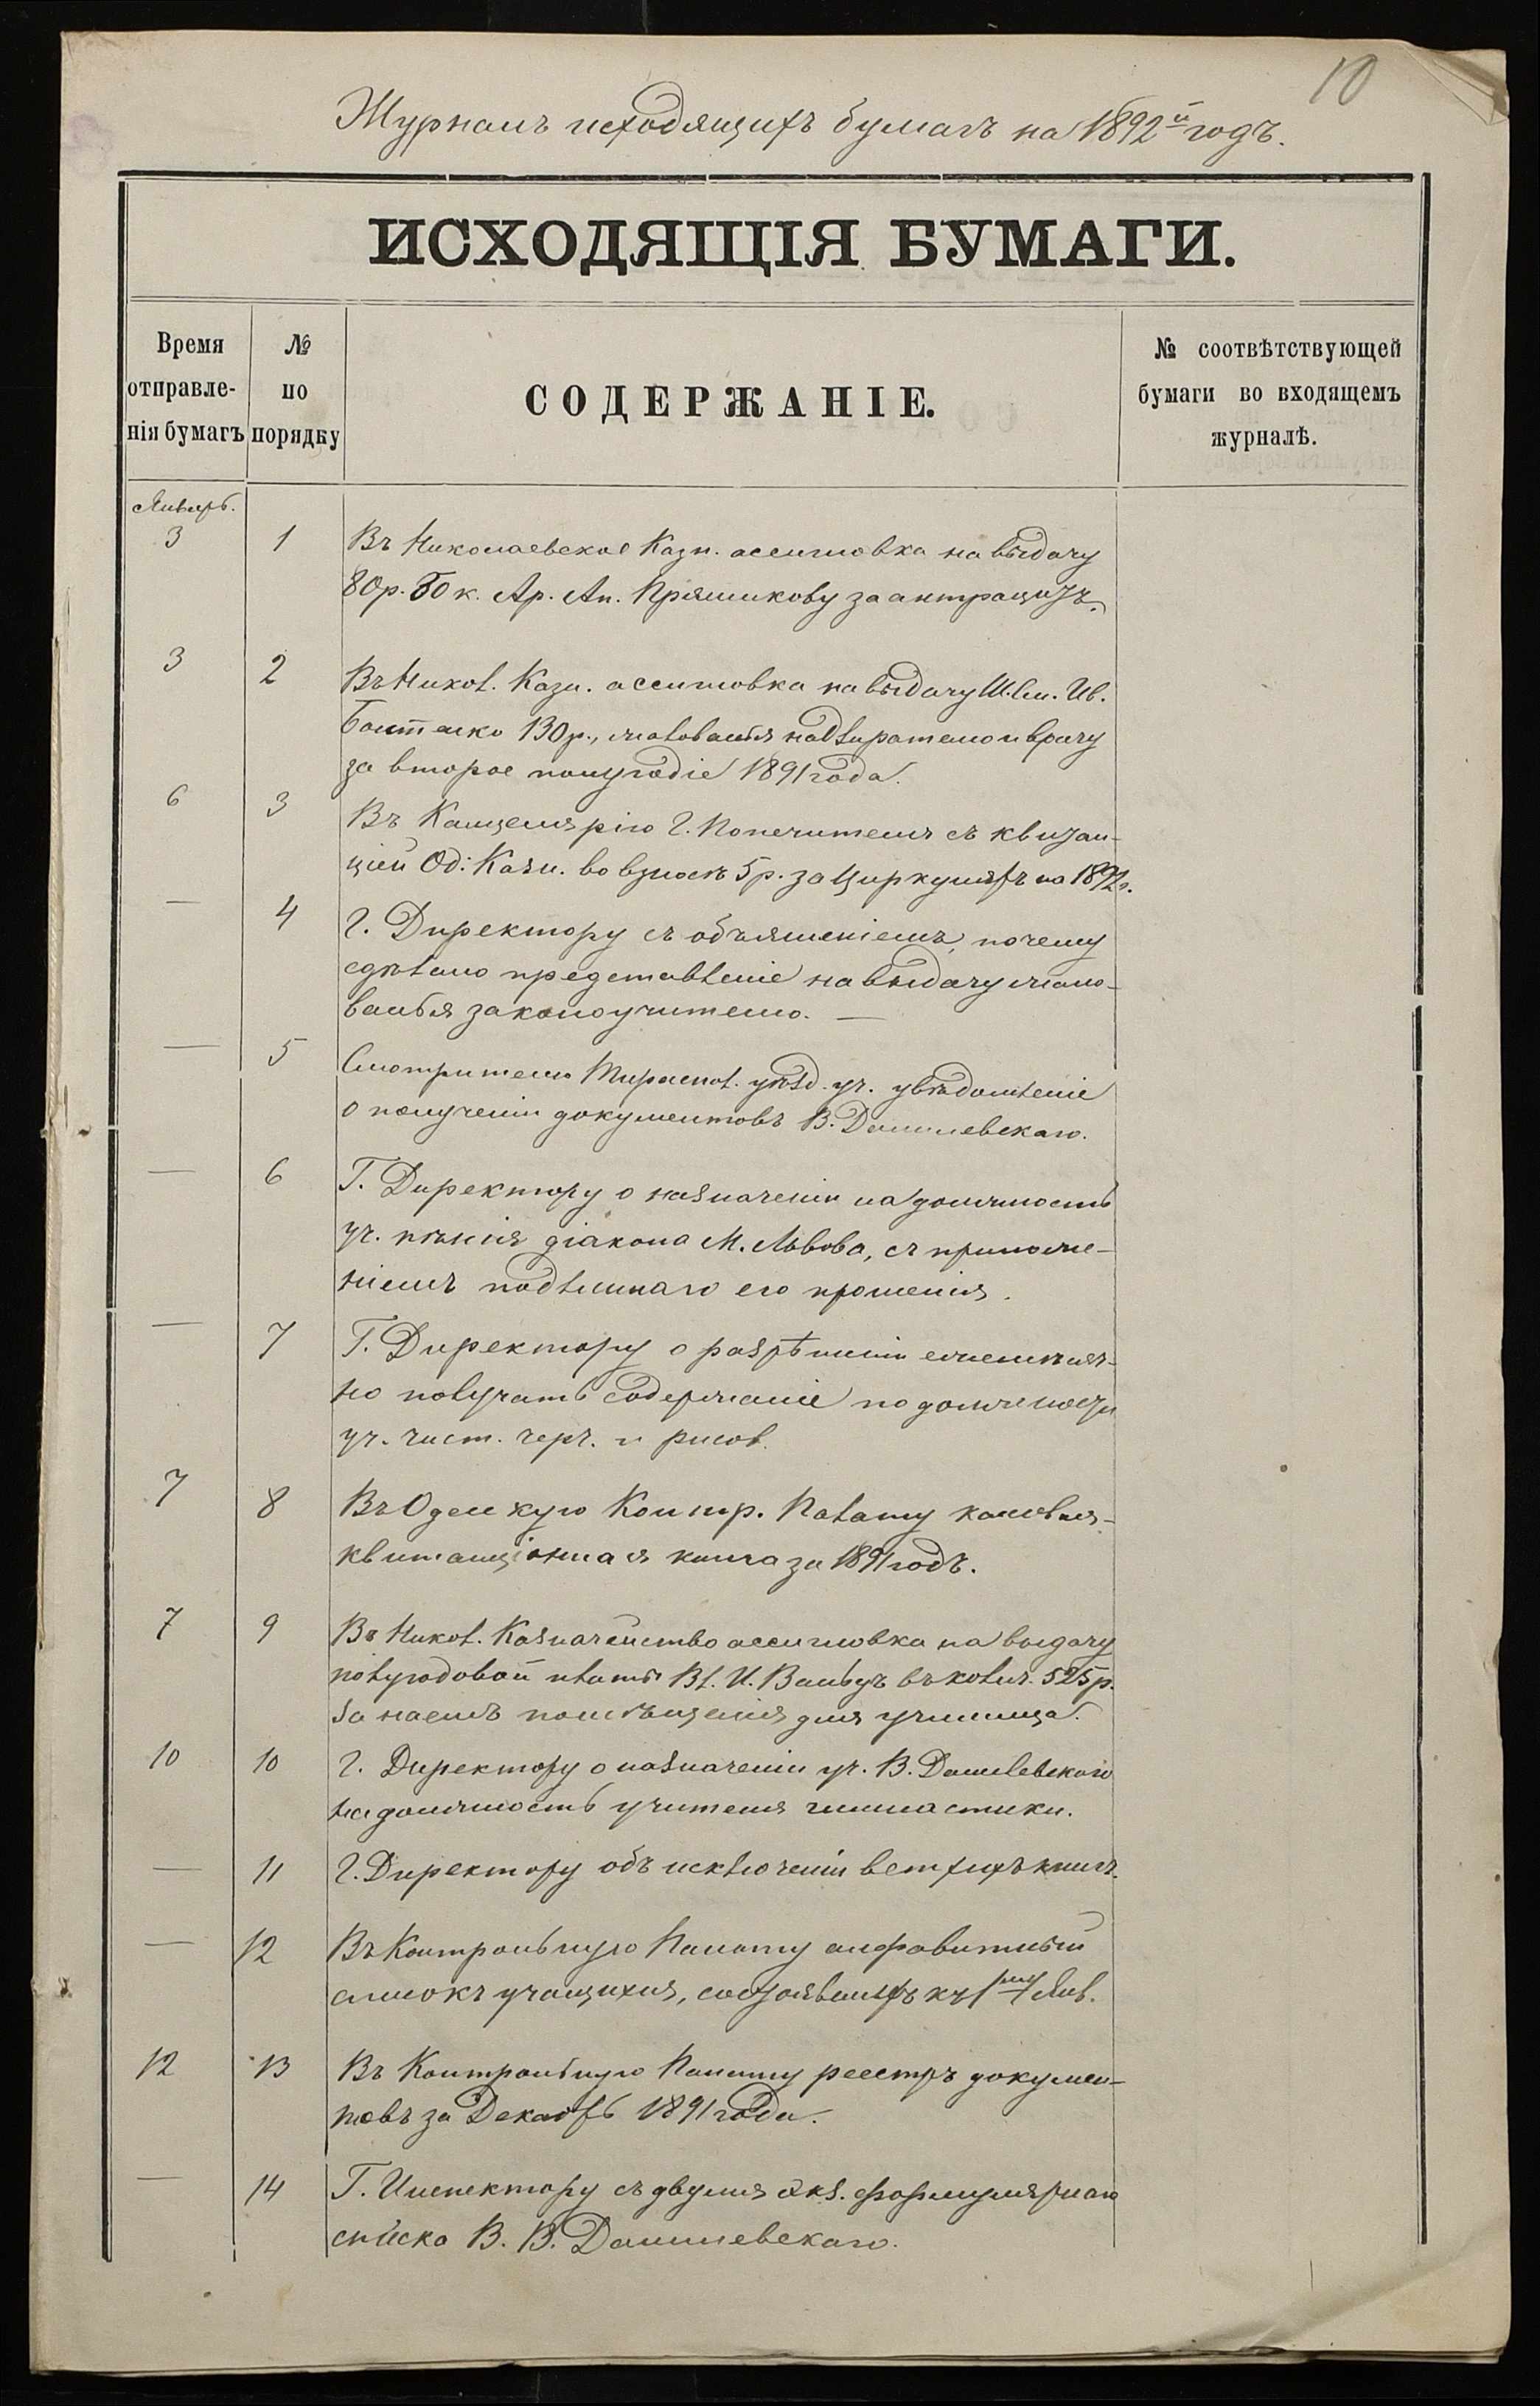 10
Журналъ исходящихъ бумагъ на 1892й годъ.
ИСХОДЯЩІЯ БУМАГИ.
Время отправле-нія бумагъ
№ по порядку
СОДЕРЖАНІЕ.
№ соотвѣтствующей бумаги во входящемъ журналѣ.
Январь.
3 1 Въ Николаевское Казн. ассигновка на выдачу
80р. 50к. Ар. Ан. Прянишкову за антрацитъ.
3 2 Въ Никол. Казн. ассигновка на выдачу Ив.
130р., жалованья надзирателю и врачу
за второе полугодіе 1891 года.
6 3 Въ Канцелярію Г. Попечителя съ квитан-
ціей Од. Казн. во взносѣ 5р. за Циркуляръ на 1892г.
— 4 Г. Директору съ объясненіемъ, почему
сдѣлано представленіе на выдачу жало-
ванья законоучителю. —
— 5 Смотрителю Тираспол. уѣзд. уч. увѣдомленіе
о полученіи документовъ В. Данилевскаго.
— 6 Г. Директору о назначеніи на должность
уч. пѣнія діакона М. Львова, съ приложе-
ніемъ подлиннаго его прошенія.
— 7 Г. Директору о разрѣшеніи ежемѣсяч-
но получать содержаніе по должности
уч. чист. черч. и рисов.
7 8 Въ Одесскую Контр. Палату кассовая
квитанціонная книга за 1891 годъ.
7 9 Въ Никол. Казначейство ассигновка на выдачу
полугодовой платы Вл. И. въ колич. 525р.
за наемъ помѣщенія для училища.
10 10 Г. Директору о назначеніи уч. В. Данилевскаго
на должность учителя гимнастики.
— 11 Г. Директору объ исключеніи ветхихъ книгъ.
— 12 Въ Контрольную Палату алфавитный
списокъ учащихся, состоявшихъ къ 1му Янв.
12 13 Въ Контрольную Палату реестръ докумен-
товъ за Декабрь 1891 года.
— 14 Г. Инспектору съ двумя экз. формулярнаго
списка В. В. Данилевскаго.